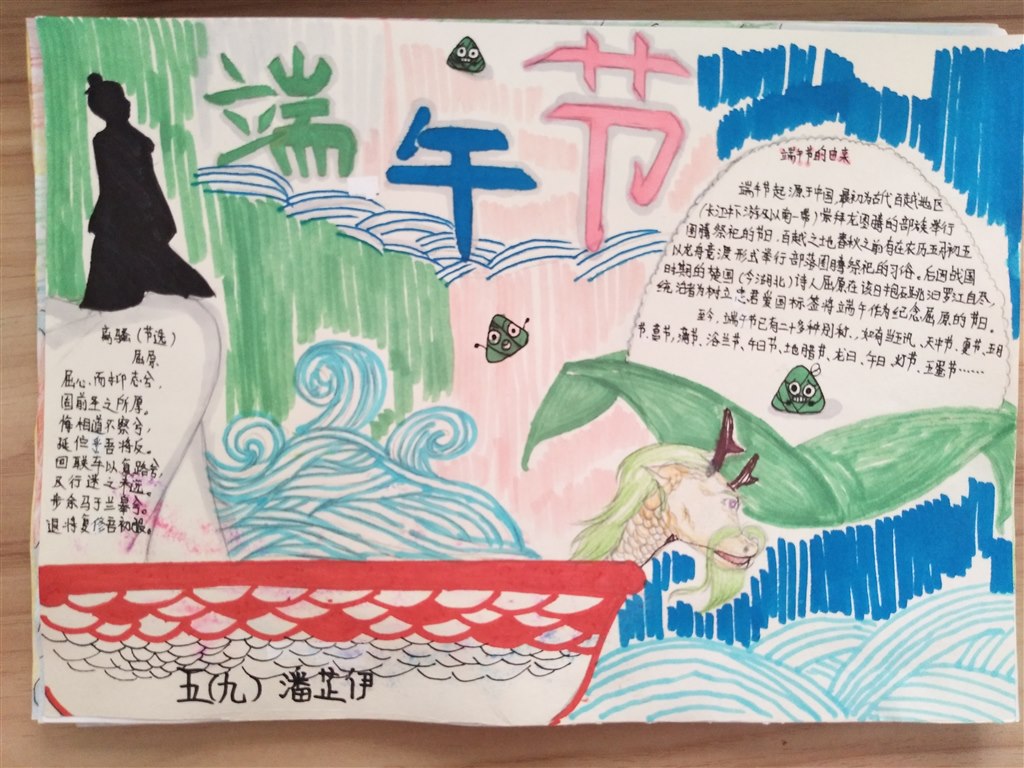 端午节
端午节的由来
端午节起源于中国,最初为古代百越地区
(长江中下游及以南一带)崇拜龙图腾的部族举行
图腾祭祀的节日,百越之地春秋之前有在农历五月初五
以龙舟竞渡形式举行部落图腾祭祀的习俗。后因战国
时期的楚国(今湖北)诗人屈原在该日抱石跳汨罗江自尽,
统治者为树立忠君爱国标签将端午作为纪念屈原的节日。
至今,端午节已有二十多种别称,如有当五汛、天中节、夏节、五月
节、菖节、蒲节、洛兰节、午日节、地腊节、龙日、午日、灯节、五蛋节……
离骚(节选)
屈原
屈心而抑志兮,
固前圣之所厚。
悔相道不察兮,
延伫乎吾将反。
回朕车以复路兮,
及行迷之未远。
步余马于兰皋兮。
退将复修吾初服。
五(九) 潘芷伊